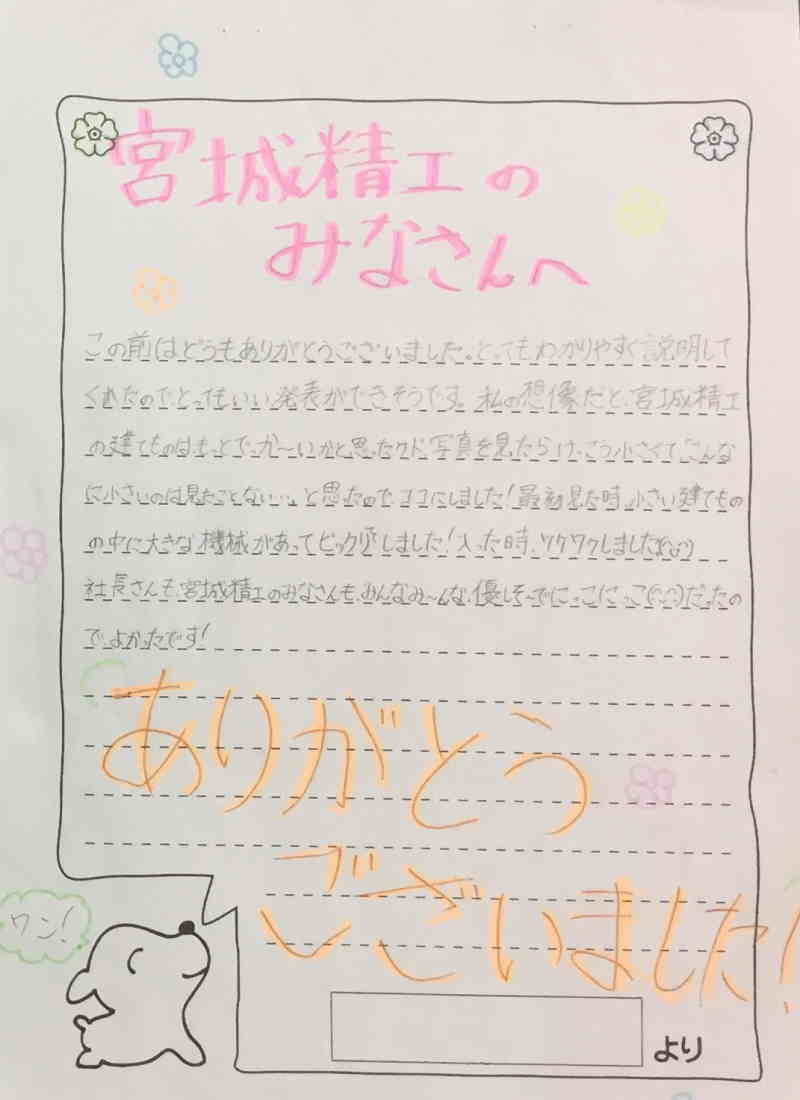 宮城精工の
みなさんへ
この前はどうもありがとうございました。とってもわかりやすく説明して
くれたのでとってもいい発表ができそうです。私の想像だと、宮城精工
の建てものはもっとでっか〜いかと思ったケド、写真を見たらけっこう小さくてこんな
に小さいのは見たことない…。と思ったので、ココにしました!最初見た時、小さい建てもの
の中に大きな機械があってビックリしました!入った時、ワクワクしました
社長さんも、宮城精工のみなさんも、みんなみ〜んな、優しそ〜でにっこにっこ(^-^)だったの
で、よかったです!
ありがとう
ございました!
ワン!
より